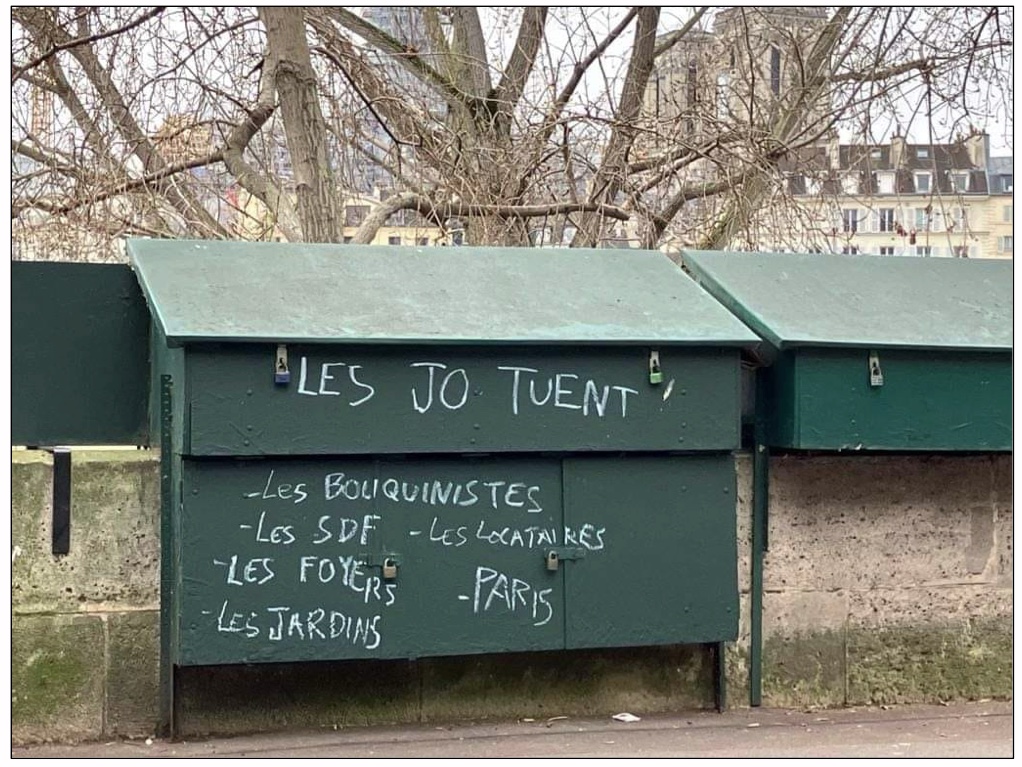 LES JO TUENT
-Les BOUQUINISTES
-Les SDF
-LES LOCATAIRES
-LES FOYERS
-PARIS
-LES JARDINS